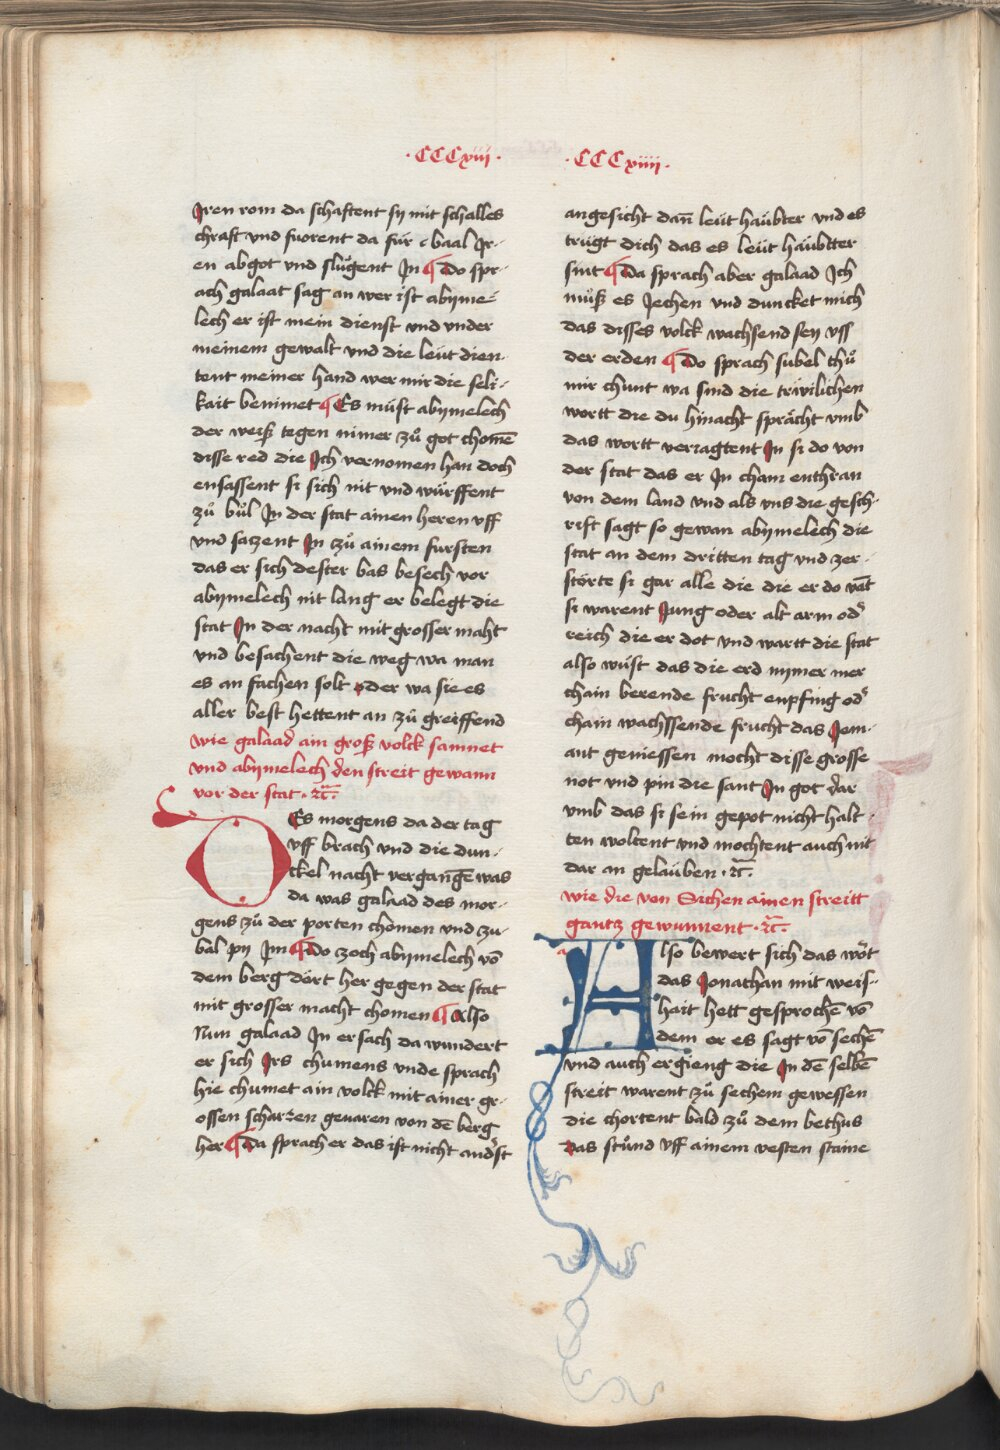 ·CCCxviii·
Jren rom da schaftent sy mit schalles
chraft vnd fuorent da für baal Jr-
en abgot vnd flůgent Jn ¶ Do spr-
ach galaat sag an wer ist abyme-
lech er ist mein dienst vnd vnder
meinem gewalt vnd die leüt dien
tent meiner hand wer mir die seli-
kait benimet ¶ Es müst abymelech
der weiß tegen nimer zů got chomē
disse red die Jch vernomen han doch
ensassent si sich nit vnd würffent
zů bůl Jn der stat ainen heren vff
vnd satzent Jn zů ainem fursten
das er sich dester bas besech vor
abymelech nit lang er belegt die
stat Jn der nacht mit grosser maht
vnd besachent die weg wa man
es an fachen solt oder wa sie es
aller best hettent an zů greiffend
wie galaad ain groß volck samnet
vnd abymelech den streit gewann
vor der stat · ꝛc̄ ·
DEs morgens da der tag
vff brach vnd die dun-
ckel nacht vergangē was
da was galaad des mor-
gens zů der porten chomen vnd zu-
bal py Jm ¶ Do zoch abymelech vō
dem berg dort her gegen der stat
mit grosser macht chomen ¶ Also
Nun galaad Jn ersach da wundert
er sich Jrs chumens vnde sprach
hie chumet ain volck mit ainer gr-
ossen scharzen geuaren von dē berg
her ¶ Da sprach er das ist nicht anderst
·CCCxviiii·
angesicht dan̄ leüt haübter vnd es
trügt dich das es leüt haübtter
sint ¶ Da sprach aber galaad Jch
můß es Jechen vnd duncket mich
das disses volck wachsend sey vss
der erden ¶ Do sprach subel thů
mir chunt wa sind die träwlichen
wortt die du hinacht sprächt vmb
das wortt verragtent Jn si do von
der stat das er Jn cham enthran
von dem land vnd als vns die gesch-
rift sagt so gewan abymelech die
stat an dem dritten tag vnd zer-
störte si gar alle die die er do vāt
si warent Jung oder alt arm od̛
reich die er dot vnd wartt die stat
also wůst das die erd nymer mer
chain berende frucht enpfing od̛
chain wachssende frucht das Jem-
ant geniessen mocht disse grosse
not vnd pin die sant Jn got dar
vmb das si sein gepot nicht halt-
ten woltent vnd mochtent auch nit
dar an gelauben · ꝛc̄ ·
wie die von Sichen ainen streitt
gantz gewunnent · ꝛc̄ ·
Also bewert sich das wört
das Jonathan mit weis-
hait hett gesprochē vō
dem er es sagt vō sechē
vnd auch ergieng die Jn dē selbē
streit warent zů sechem gewessen
die chortent bald zů dem bethus
das stůnd vff ainem vesten staine